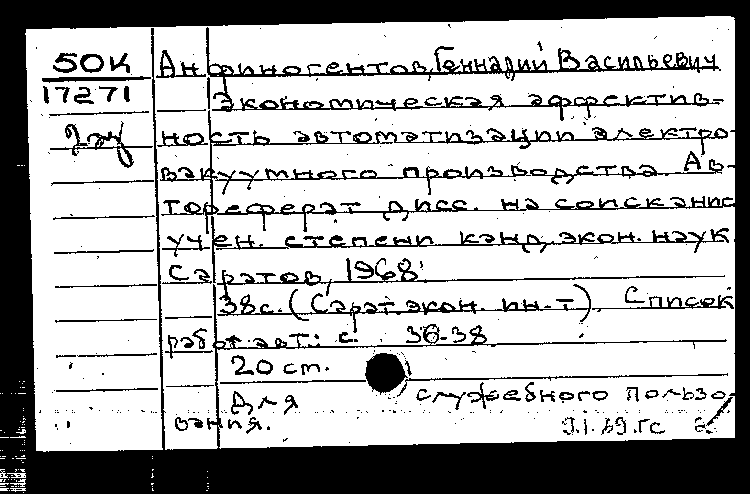 50К
17271
Анфиногентов, Геннадий Васильевич
Экономическая эффектив-
ность автоматизации электро-
вакуумного производства. Ав-
тореферат дисс. на соискание
учен. степени канд. экон. наук.
Саратов, 1968.
38с. (Сарат. экон. ин-т). Список
работ авт.: с. 36-38.
20 cm.
Для служебного пользо
вания.